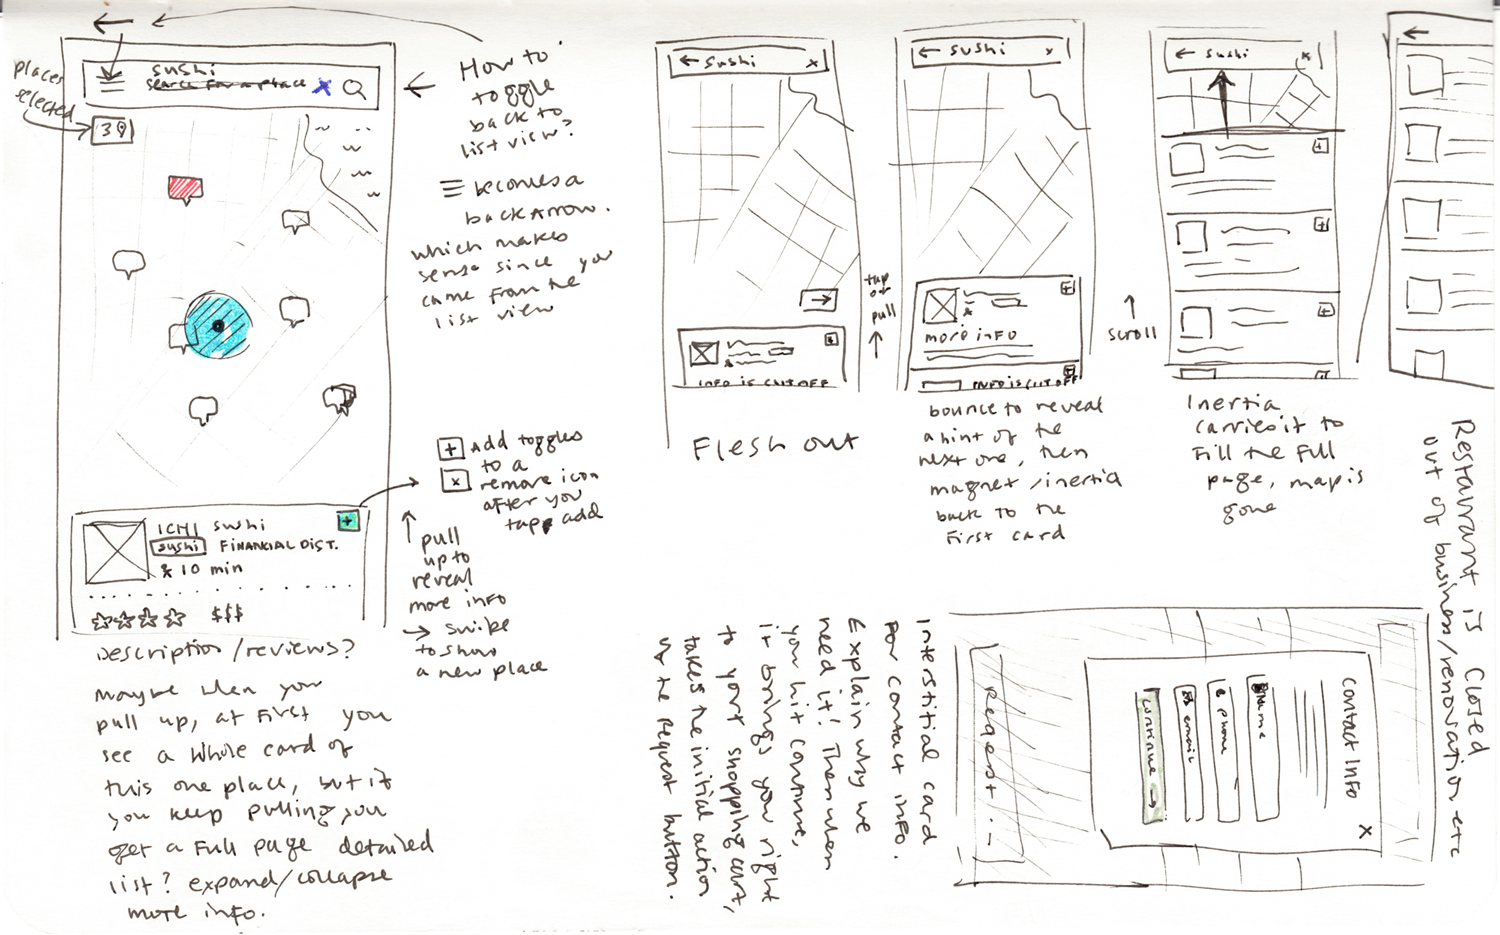 places
selected
sushi
search for a place
x
39
How to
toggle
back to
list view?
becomes a
back arrow.
which makes
sense since you
came from the
list view
+ Add toggles
to a
x remove icon
after you
tap add
pull
up to
reveal
more info
→ swipe
to show
a new place
ICHI sushi
sushi FINANCIAL DIST.
10 min
$$$
Description/reviews?
maybe when you
pull up, at first you
see a whole card of
this one place, but if
you keep pulling you
get a full page detailed
list? expand/collapse
more info.
← sushi x
→
INFO IS CUT OFF
Flesh out
tap or
pull
← sushi x
+
more info
INFO IS CUT OFF
bounce to reveal
a hint of the
next one, then
magnet/inertia
back to the
first card
scroll
← sushi x
+
+
+
Inertia
carries it to
fill the full
page, map is
gone
←
Restaurant is closed
out of business/renovation etc
Interstitial card
for contact info.
Explain why we
need it! Then when
you hit continue,
it brings you right
to your shopping cart,
takes the initial action
the request button.
contact info
x
name
phone
email
continue →
Request